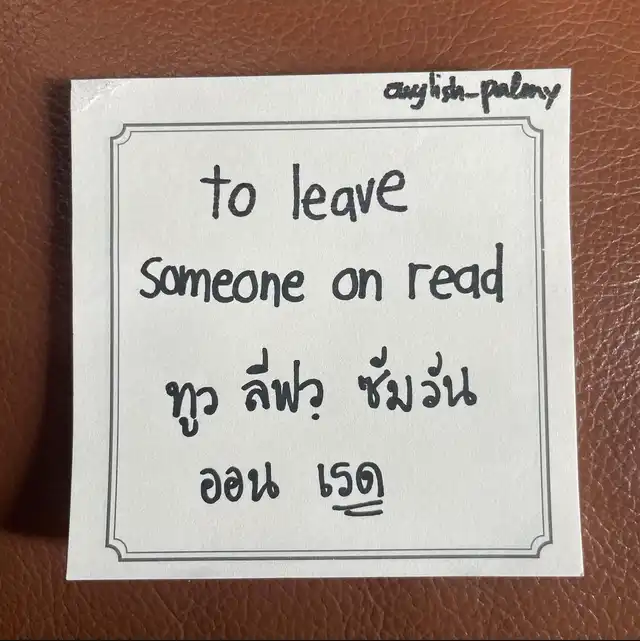 anglish_palmy
to leave
someone on read
ทูว ลีฟวฺ ซัมวัน
ออน เรด